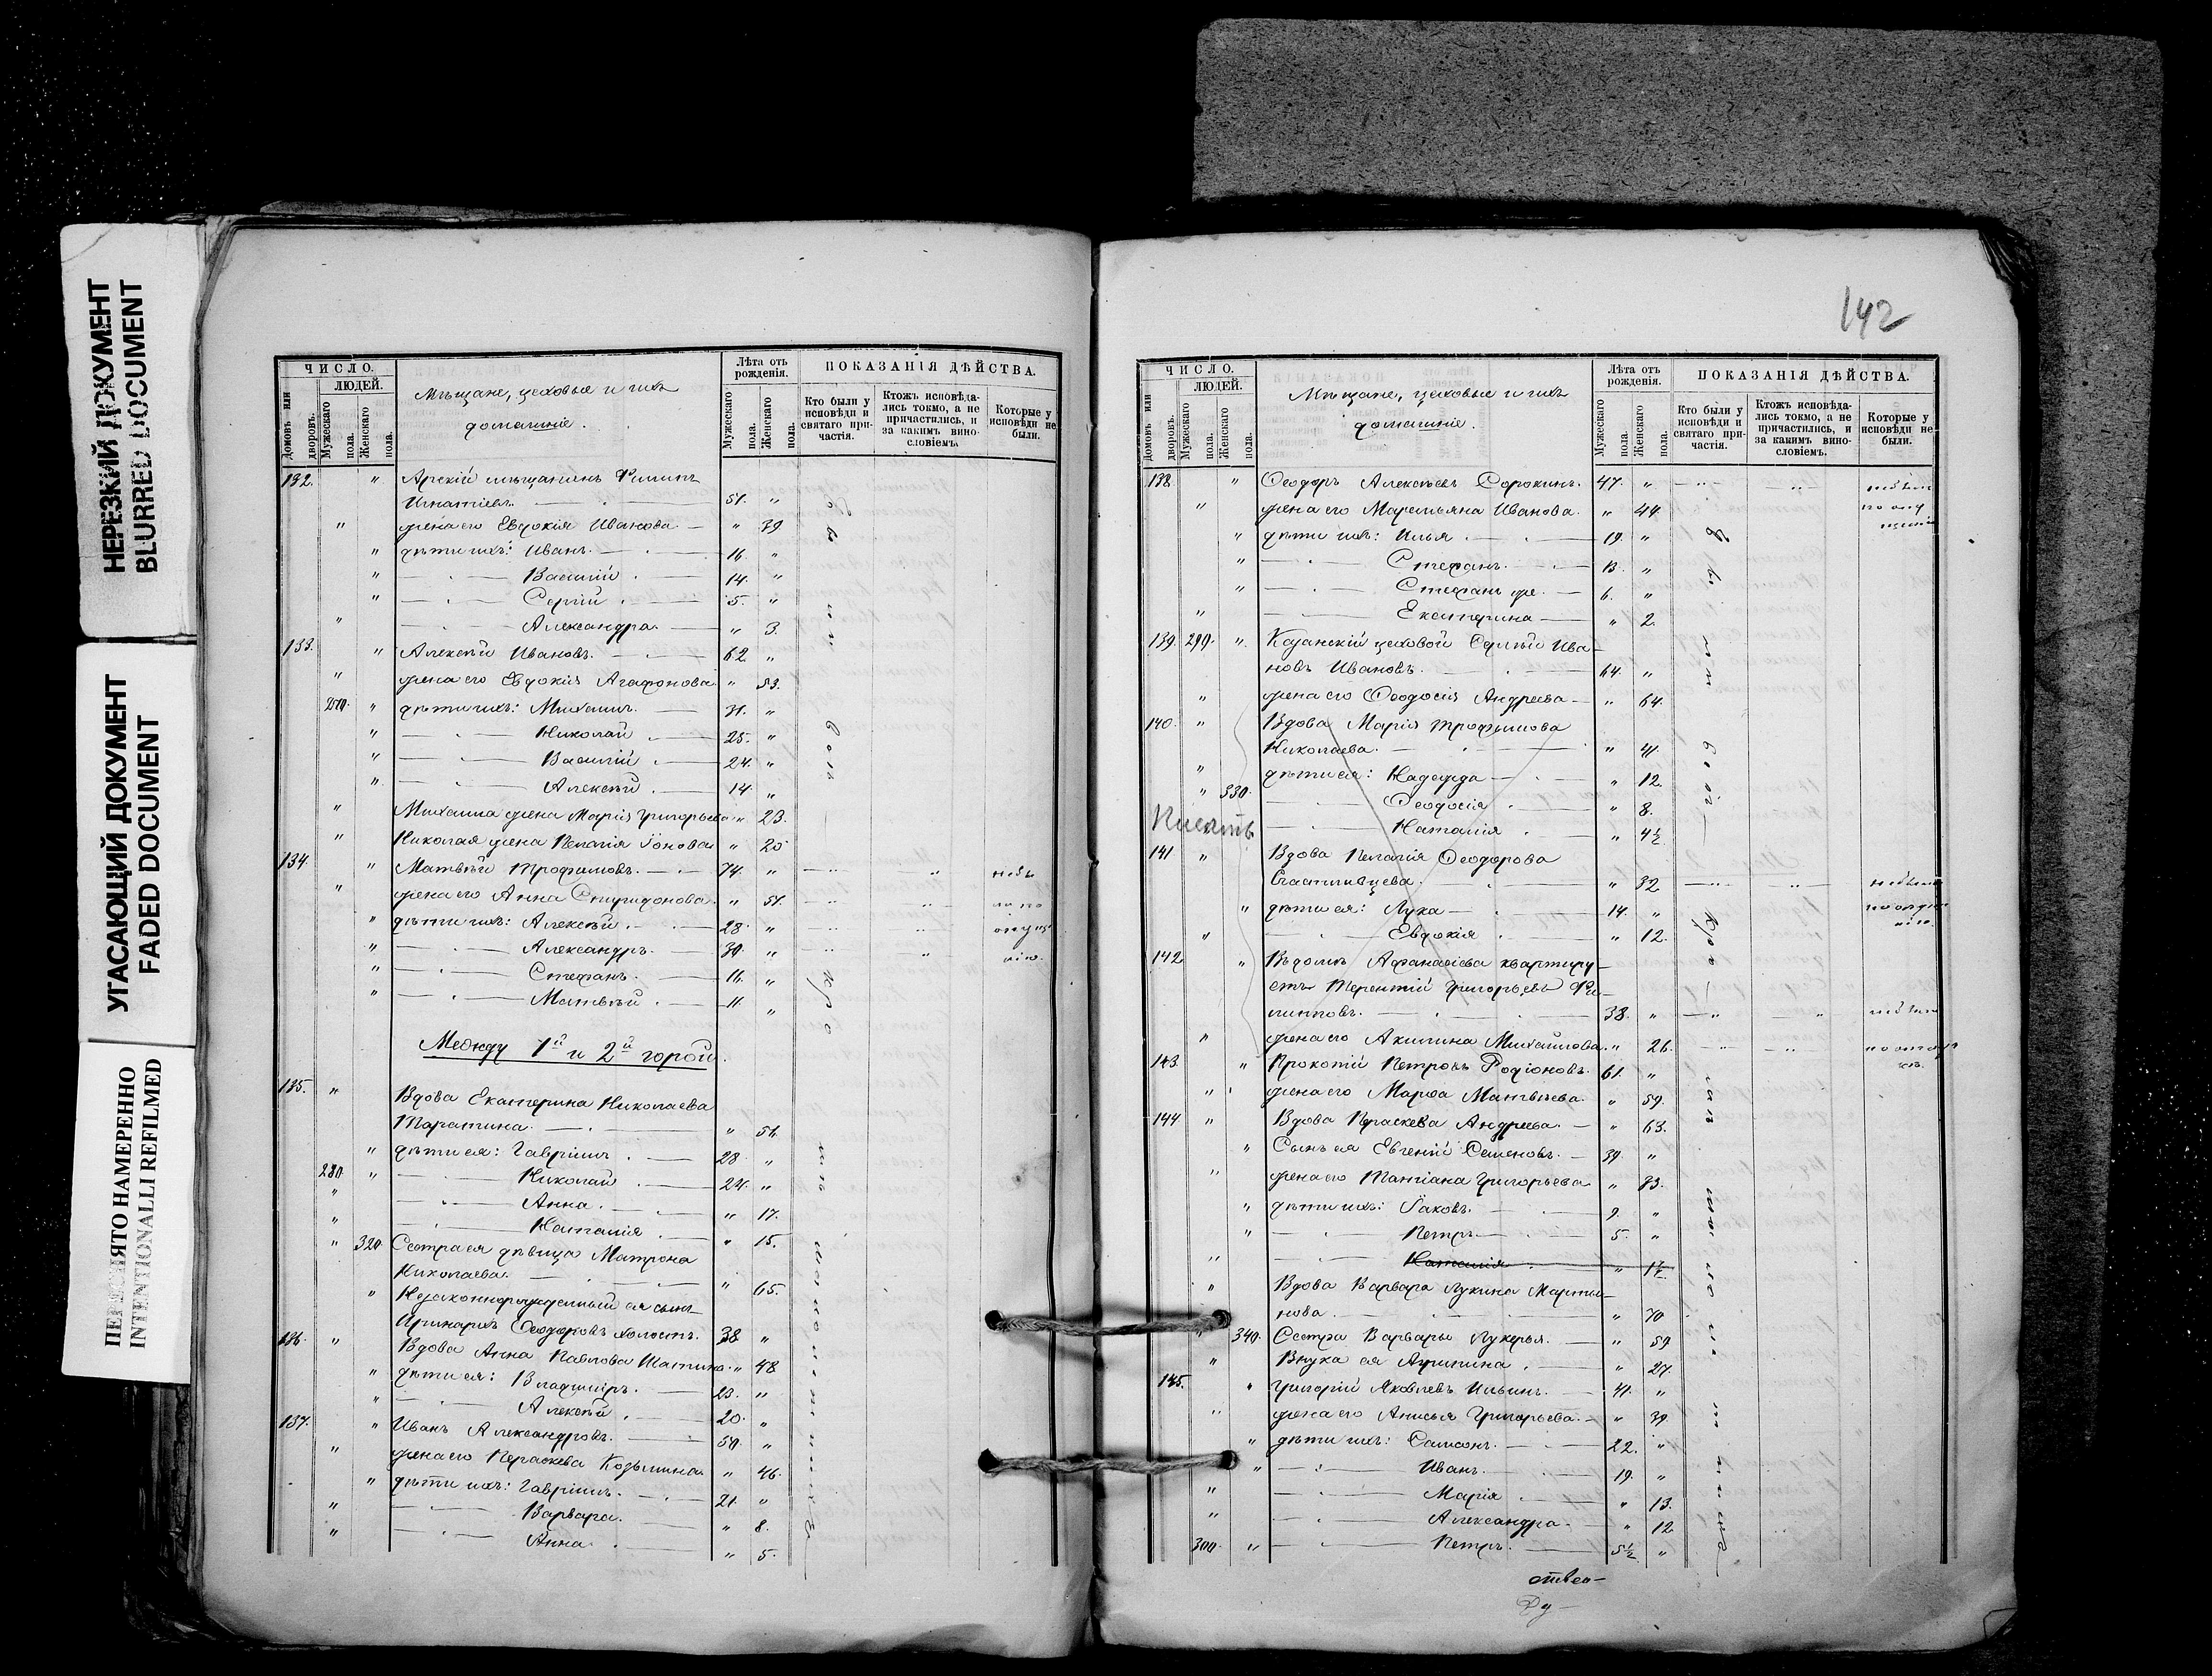 НЕРЕЗКИЙ ДОКУМЕНТ
BLURRED DOCUMENT
УГАСАЮЩИЙ ДОКУМЕНТ
FADED DOCUMENT
ПЕРЕСНЯТО НАМЕРЕННО
INTENTIONALLI REFILMED
ЧИСЛО.
ЛЮДЕЙ.
Домовъ или дворовъ.
Мужескаго пола.
Женскаго пола.
Мѣщане, цеховые и ихъ
домашніе.
Лѣта отъ рожденія.
Мужескаго пола.
Женскаго пола.
ПОКАЗАНІЯ ДѢЙСТВА.
Кто были у исповѣди и святаго причастія.
Ктожъ исповѣдались токмо, а не причастились, и за какимъ винословіемъ.
Которые у исповѣди не были.
132. " Арскій мѣщанинъ Филипъ
Игнатіевъ. 51. "
" жена его Евдокія Иванова — " 39
" дѣти ихъ: Иванъ. 16. "
" Василій 14. "
" Сергій 5. "
" Александра " 3.
133. " Алексѣй Ивановъ. 62. "
" жена его Евдокія Агафонова " 53.
" дѣти ихъ: Михаилъ. 31. "
" Николай 25. "
" Василій 24. "
" Алексѣй 14. "
" Михаила жена Марія Григорьева " 23.
" Николая жена Пелагія Іонова " 25
134. " Матвѣй Трофимовъ. 74. "
" жена его Анна Спиридонова. " 51.
" дѣти ихъ: Алексѣй 28. "
" Александръ 30. "
" Стефанъ. 16. "
" Матвѣй 11. "
Между 1й и 2й горой.
135. " Вдова Екатерина Николаева
" 51.
" дѣти ея: Гавріилъ 28. "
280. " Николай 24. "
" Анна " 17.
" Наталія " 15.
" 320. Сестра ея дѣвица Матрона
Николаева. " 65.
" Незаконнорожденный ея сынъ
Ѳеодоровъ холостъ. 38 "
136. " Вдова Анна Павлова " 48
" дѣти ея: Владиміръ. 23. "
" Алексѣй 20. "
137. " Иванъ Александровъ. 50. "
" жена его Параскева Козьмина " 46.
" дѣти ихъ: Гавріилъ. 21. "
" Варвара. " 8.
" Анна " 5.
142
ЧИСЛО.
ЛЮДЕЙ.
Домовъ или дворовъ.
Мужескаго пола.
Женскаго пола.
Мѣщане, цеховые и ихъ
домашніе.
Лѣта отъ рожденія.
Мужескаго пола.
Женскаго пола.
ПОКАЗАНІЯ ДѢЙСТВА.
Кто были у исповѣди и святаго причастія.
Ктожъ исповѣдались токмо, а не причастились, и за какимъ винословіемъ.
Которые у исповѣди не были.
138. " Ѳеодоръ Алексѣевъ Сорокинъ. 47. "
" жена его Маремьяна Иванова. " 44.
" дѣти ихъ: Илья 19. "
" Стефанъ. 13. "
" Стефанъ же. 6. "
" Екатерина " 2.
139. 290. " Казанскій цеховой Сергѣй Ива-
новъ Ивановъ. 64. "
" жена его Ѳеодосія Андреева — " 64.
140. " Вдова Марія Трофимова
Николаева. " 41.
" дѣти ея: Надежда " 12.
" 330. Ѳеодосія " 8.
Наталія " 4½
141 " Вдова Пелагія Ѳеодорова
Счастливцева. " 32
" дѣти ея: Лука 14. "
" Евдокія " 12.
142. " Въ домѣ Афанасіева квартиру-
етъ Терентій Григорьевъ Фи-
липповъ. 38. "
" жена его Акилина Михайлова. " 26.
143. " Прокопій Петровъ Родіоновъ. 61. "
" жена его Марѳа Матвѣева. " 59.
144. " Вдова Параскева Андреева. " 63.
" Сынъ ея Евгеній Семеновъ. 39. "
" жена его Татіана Григорьева " 33.
" дѣти ихъ: Іаковъ. 9. "
" Петръ 5. "
" Наталія " 1½
" Вдова Варвара Лукина Марты-
нова. " 70
" 340. Сестра Варвары Лукерья. " 59
" Внука ея Агрипина " 27.
145. " Григорій Яковлевъ Ильинъ. 41. "
" жена его Анисья Григорьева. " 39.
" дѣти ихъ: Самсонъ. 22. "
" Иванъ. 19. "
" Марія " 13.
" Александра " 12
300. " Петръ. 5½ "